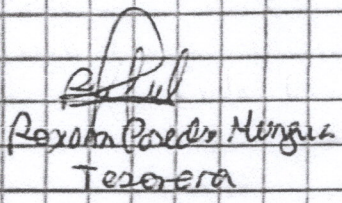 Roxana Paredes Mungia
Tesorera